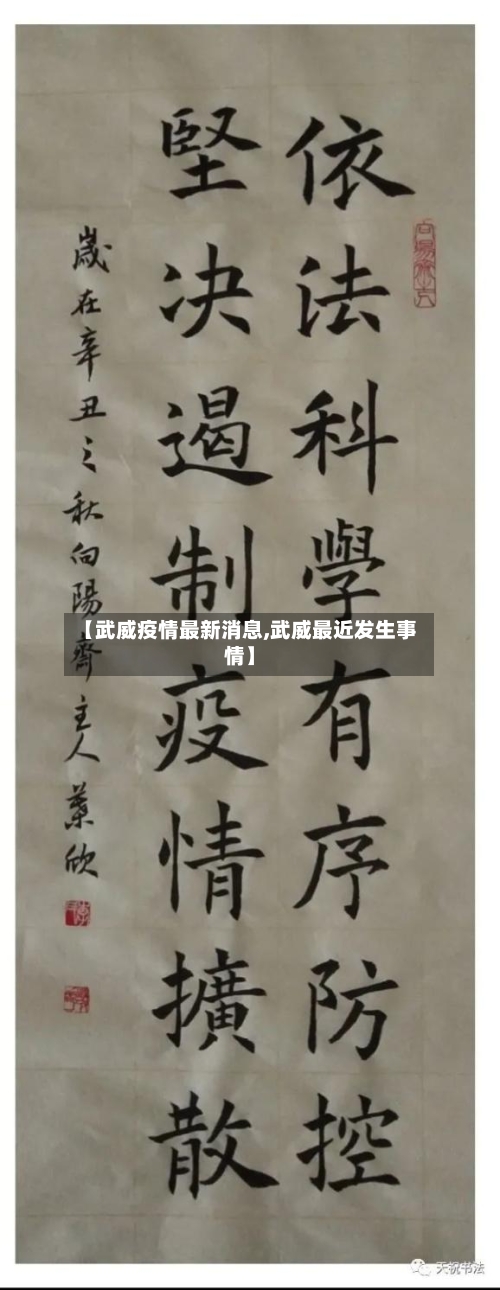 依法科學有序防控
堅决遏制疫情擴散
歲在辛丑之秋向陽齋主人葉欣
【武威疫情最新消息,武威最近发生事
情】
天祝书法